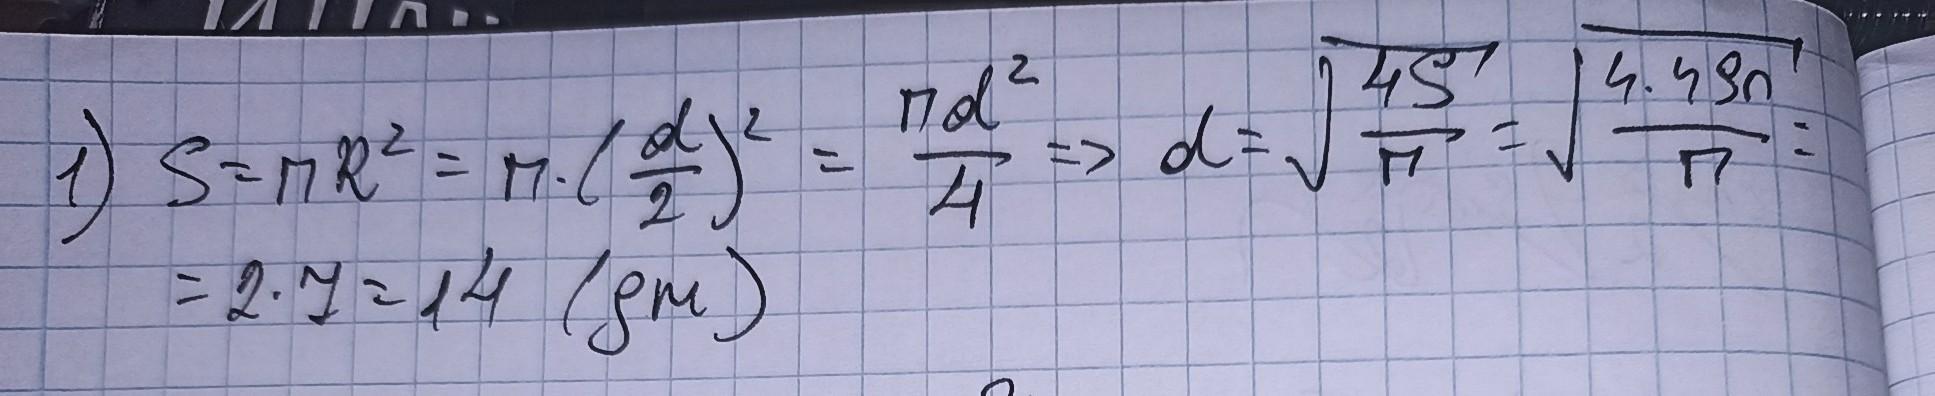 1) S = πR² = π·(d/2)² = πd²/4 => d = √(4S/π) = √(4·49π/π) =
= 2·7 = 14 (дм)